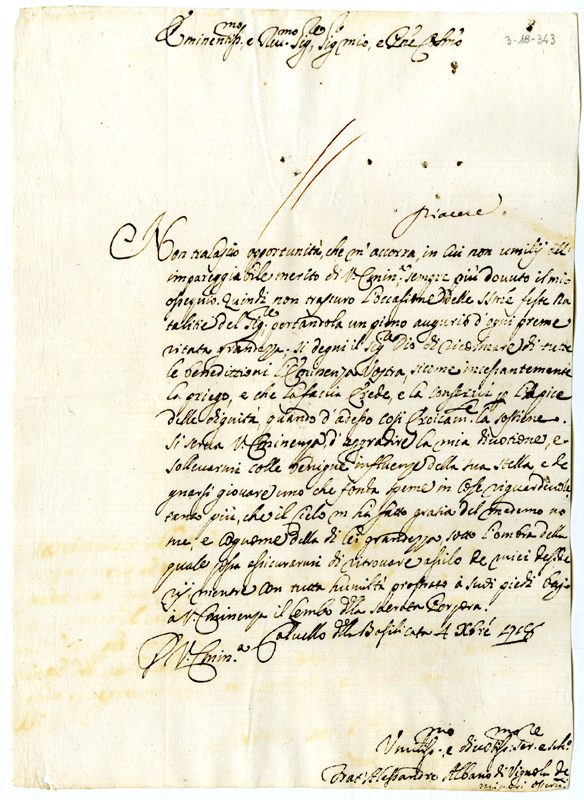 Eminentiss.mo e Rev.mo Sig.re, Sig.r mio, e Pne
3-18-343
piacere
Non tralascio opportunità, che m'accorra, in cui non umilij all
impareggiabile merito di V. Emin.za sempre più dovuto il mio
ossequio. Quindi non trascuro l'occasione delle S.te feste Na
talitie del Sig.re portandola un pieno augurio d'ogni preme
ditata grandezza; si degni il Sig.re Dio di ricolmare di tutte
le benedittioni l'Eminenza Vostra, sicome incessantemente
la priego, e che la faccia Erede, e la conservi l'apice
delle dignità, quando d'adesso così la sostiene.
Si serva V. Eminenza d'aggradire la mia divotione, e
sollevarmi colle benigne influenze della sua stella, e de
gnarsi giovare uno che fonda speme in
tanto più, che il Cielo m'ha fatto gratia del medemo no
me, e cognome della di lei grandezza, sotto l'ombra della
quale assicurarmi di ritrovare asilo de miei
mentre con tutta humiltà prostrato à suoi piedi bagio
à V. Eminenza il lembo della Porpora.
Calvello della Basilicata 4 Xbre
D V. Emin.a
Umiliss.mo e divotiss.mo ser.re e
Frat' Alessandro Albano di Vignola de
minori